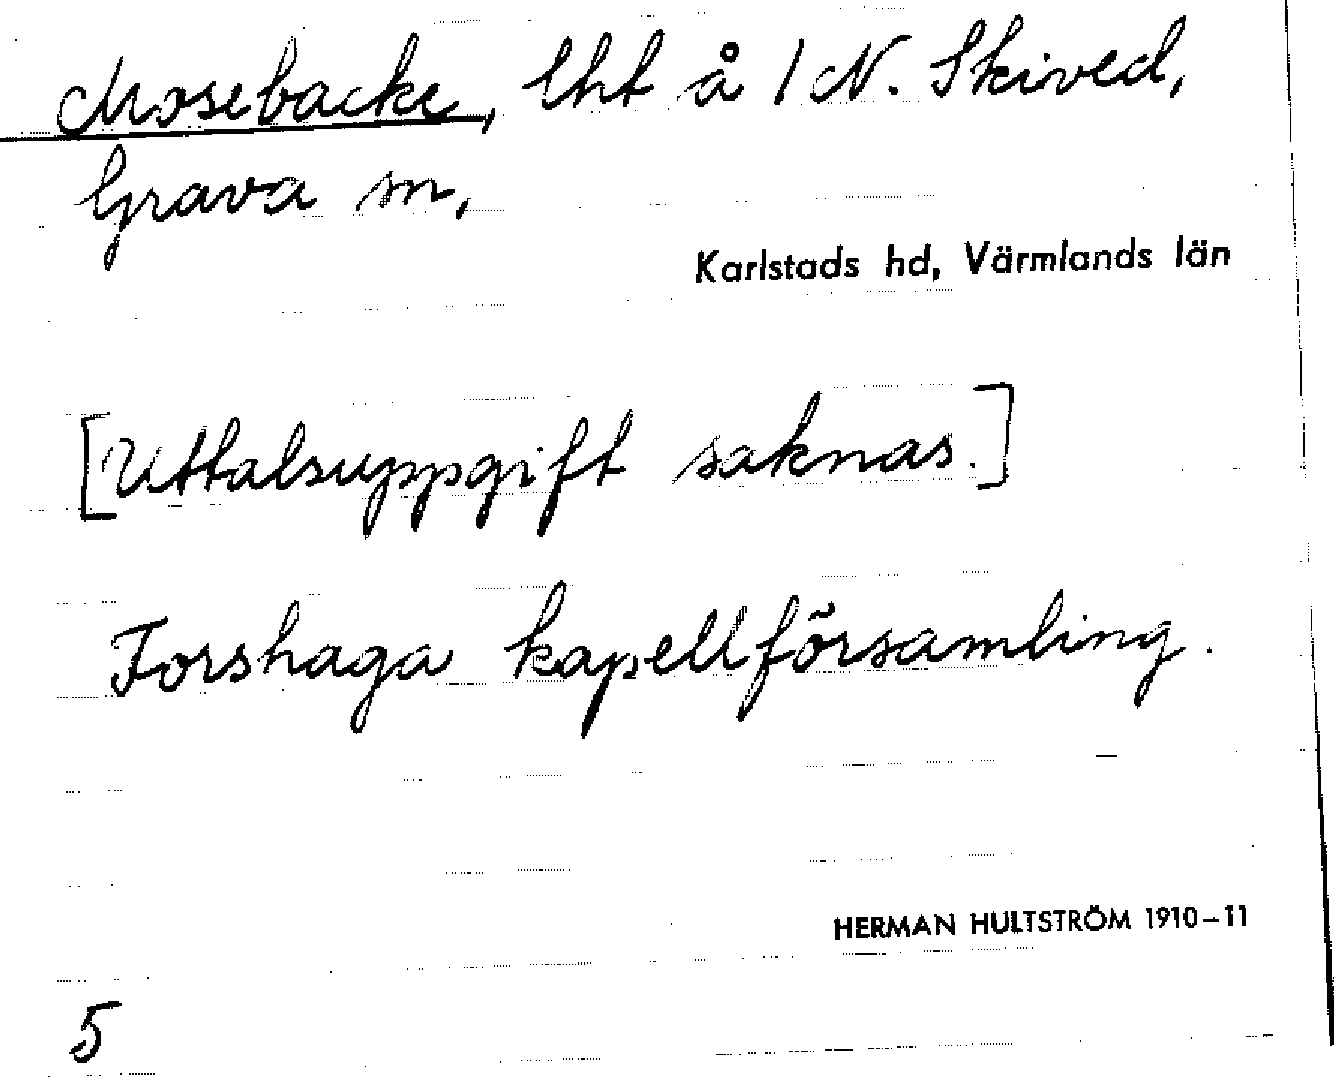 Mosebacke, lht å 1 N. Skived,
Grava sn,
Karlstads hd, Värmlands län
[Uttalsuppgift saknas.]
Forshaga kapellförsamling.
HERMAN HULTSTRÖM 1910–11
5